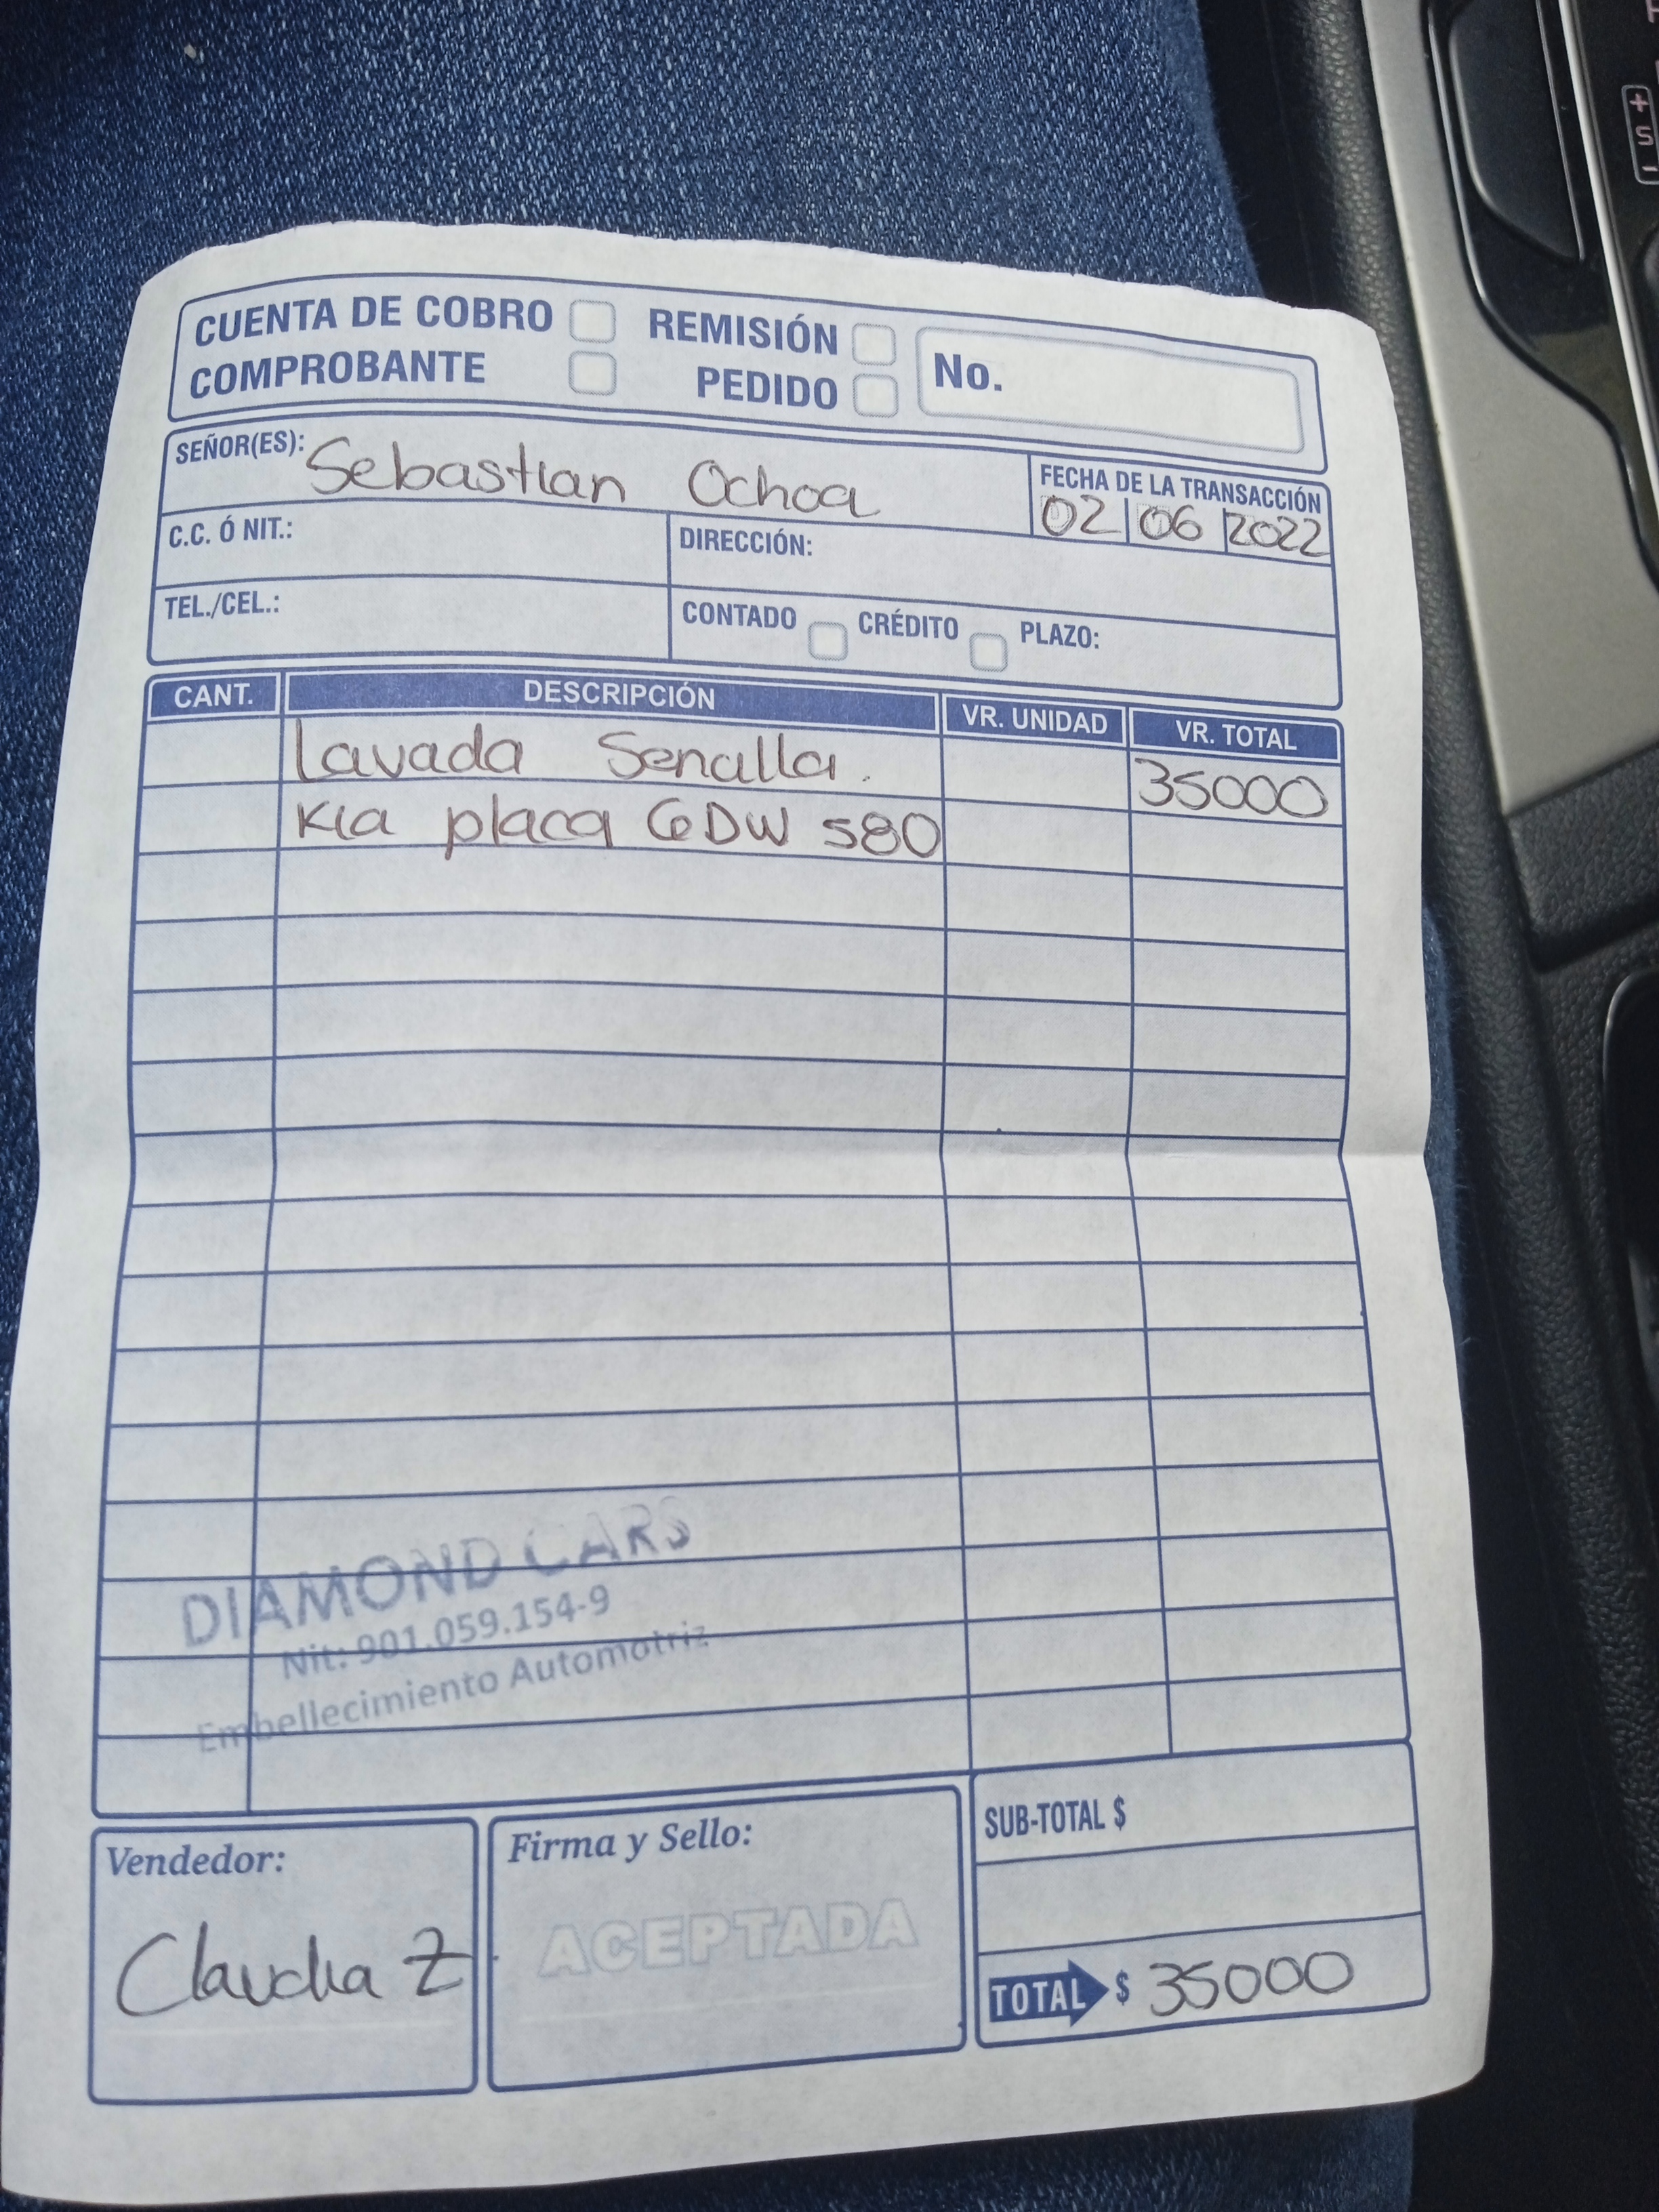 CUENTA DE COBRO REMISIÓN No.
COMPROBANTE PEDIDO
SEÑOR(ES): Sebastian Ochoa
FECHA DE LA TRANSACCIÓN
02 06 2022
C.C. Ó NIT.: DIRECCIÓN:
TEL./CEL.: CONTADO CRÉDITO PLAZO:
CANT. DESCRIPCIÓN VR. UNIDAD VR. TOTAL
Lavada Sencilla. 35000
Kia placa GDW 580
DIAMOND CARS
Nit: 901.059.154-9
Embellecimiento Automotriz
Vendedor: Firma y Sello: SUB-TOTAL $
Claudia Z ACEPTADA
TOTAL $ 35000
+
S
-